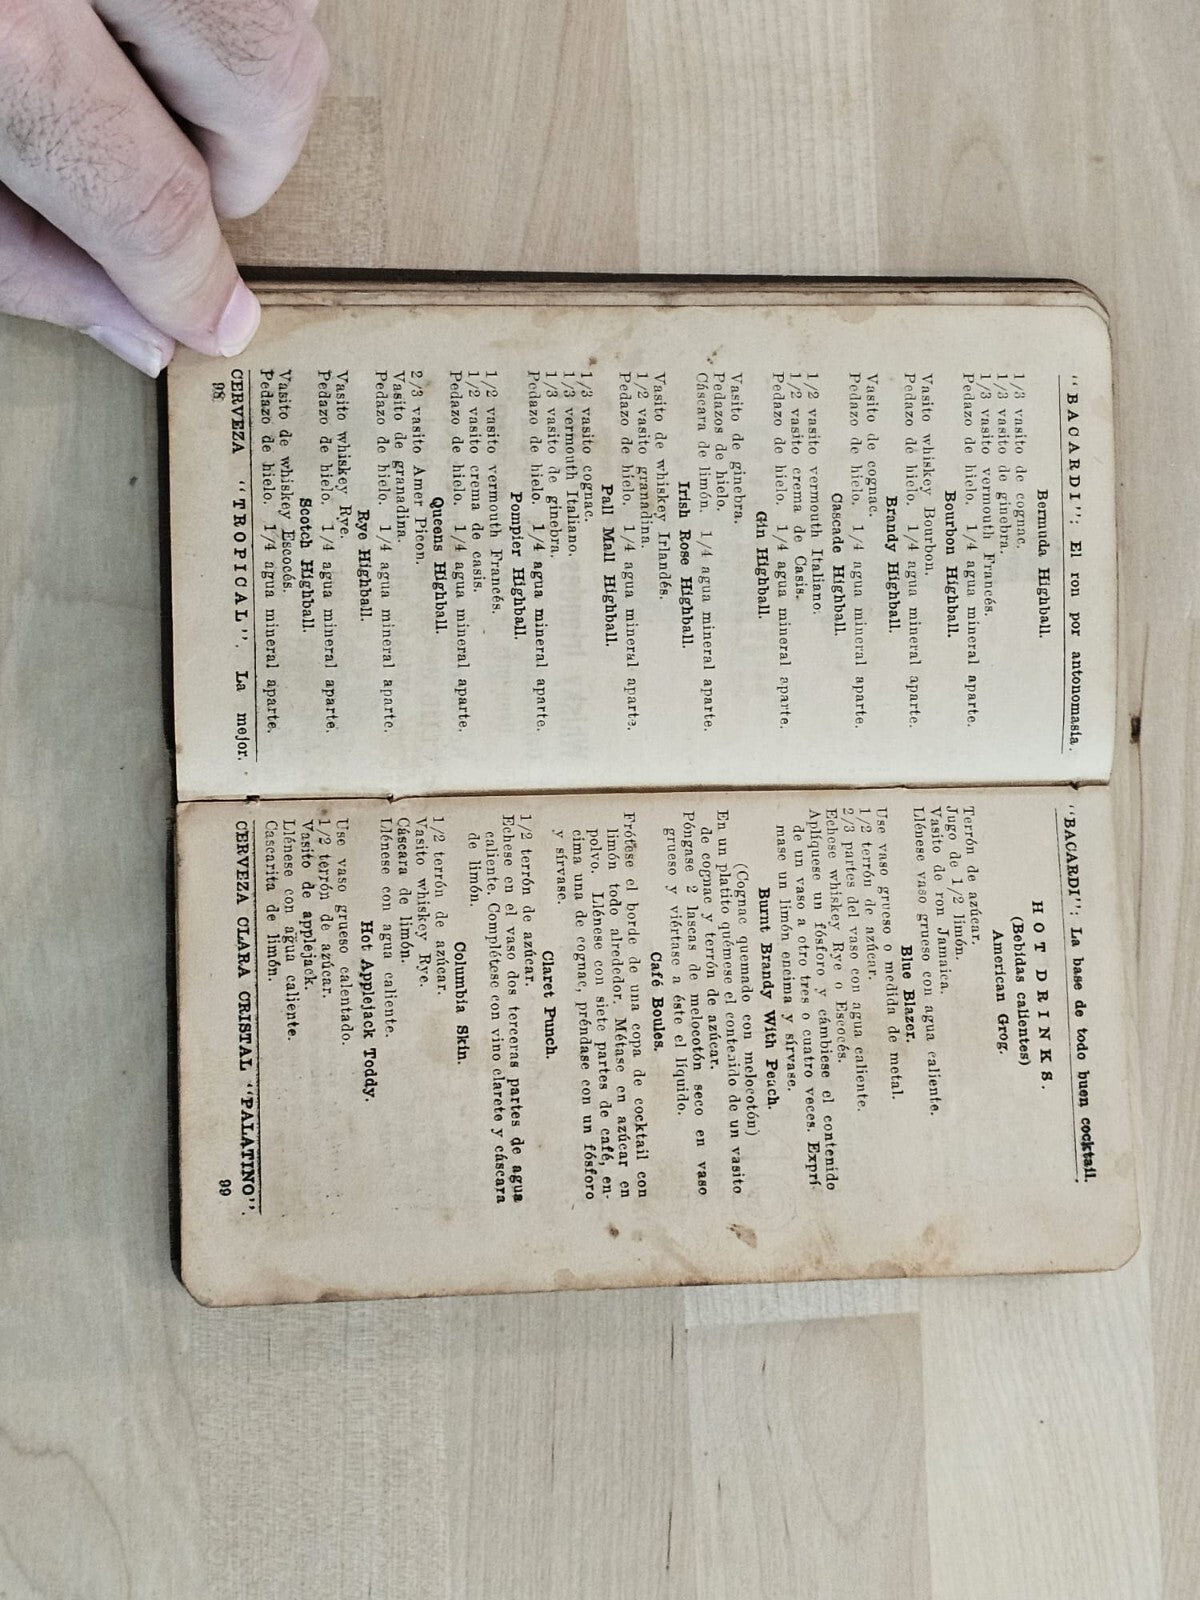 "BACARDI": El ron por antonomasia.
Bermuda Highball.
1/3 vasito de cognac.
1/3 vasito de ginebra.
1/3 vasito vermouth Francés.
Pedazo de hielo. 1/4 agua mineral aparte.
Bourbon Highball.
Vasito whiskey Bourbon.
Pedazo de hielo. 1/4 agua mineral aparte.
Brandy Highball.
Vasito de cognac.
Pedazo de hielo. 1/4 agua mineral aparte.
Cascade Highball.
1/2 vasito vermouth Italiano.
1/2 vasito crema de Casis.
Pedazo de hielo. 1/4 agua mineral aparte.
Gin Highball.
Vasito de ginebra.
Pedazos de hielo.
Cáscara de limón. 1/4 agua mineral aparte.
Irish Rose Highball.
Vasito de whiskey Irlandés.
1/2 vasito granadina.
Pedazo de hielo. 1/4 agua mineral aparte.
Pall Mall Highball.
1/3 vasito cognac.
1/3 vermouth Italiano.
1/3 vasito de ginebra.
Pedazo de hielo. 1/4 agua mineral aparte.
Pompier Highball.
1/2 vasito vermouth Francés.
1/2 vasito crema de casis.
Pedazo de hielo. 1/4 agua mineral aparte.
Queens Highball.
2/3 vasito Amer Picon.
Vasito de granadina.
Pedazo de hielo. 1/4 agua mineral aparte.
Rye Highball.
Vasito whiskey Rye.
Pedazo de hielo. 1/4 agua mineral aparte.
Scotch Highball.
Vasito de whiskey Escocés.
Pedazo de hielo. 1/4 agua mineral aparte.
CERVEZA "TROPICAL". La mejor.
98
"BACARDI": La base de todo buen cocktail.
HOT DRINKS.
(Bebidas calientes)
American Grog.
Terrón de azúcar.
Jugo de 1/2 limón.
Vasito de ron Jamaica.
Llénese vaso grueso con agua caliente.
Blue Blazer.
Use vaso grueso o medida de metal.
1/2 terrón de azúcar.
2/3 partes del vaso con agua caliente.
Echese whiskey Rye o Escocés.
Aplíquese un fósforo y cámbiese el contenido
de un vaso a otro tres o cuatro veces. Exprí-
mase un limón encima y sírvase.
Burnt Brandy With Peach.
(Cognac quemado con melocotón)
En un platito quémese el contenido de un vasito
de cognac y terrón de azúcar.
Póngase 2 lascas de melocotón seco en vaso
grueso y viértase a éste el líquido.
Café Boules.
Frótese el borde de una copa de cocktail con
limón todo alrededor. Métase en azúcar en
polvo. Llénese con siete partes de café, en-
cima una de cognac, préndase con un fósforo
y sírvase.
Claret Punch.
1/2 terrón de azúcar.
Echese en el vaso dos terceras partes de agua
caliente. Complétese con vino clarete y cáscara
de limón.
Columbia Skin.
1/2 terrón de azúcar.
Vasito whiskey Rye.
Cáscara de limón.
Llénese con agua caliente.
Hot Applejack Toddy.
Use vaso grueso calentado.
1/2 terrón de azúcar.
Vasito de applejack.
Llénese con agua caliente.
Cascarita de limón.
CERVEZA CLARA CRISTAL "PALATINO".
99